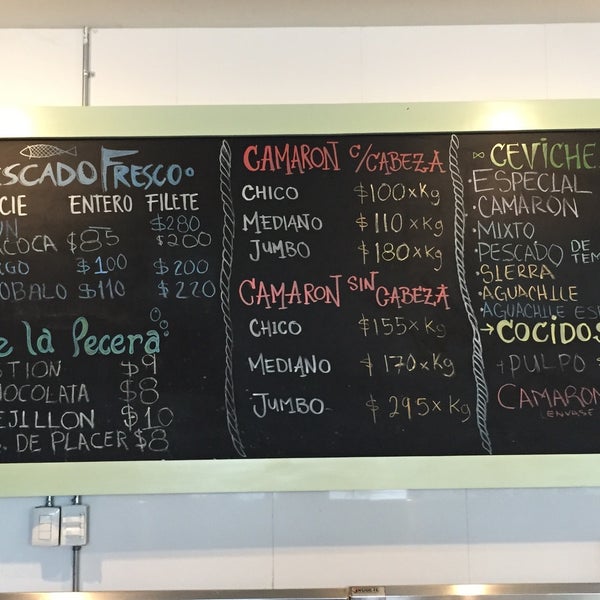 ESCADO FRESCO
CIE ENTERO FILETE
UN $280
ACOCA $85 $200
GO $100 $200
OBALO $110 $220
e la Pecera
STION $9
HOCOLATA $8
EJILLON $10
. DE PLACER $8
CAMARON C/CABEZA
CHICO $100 x Kg
MEDIANO $110 x Kg
JUMBO $180 x Kg
CAMARON SIN CABEZA
CHICO $155 x Kg
MEDIANO $170 x Kg
JUMBO $295 x Kg
CEVICHE
·ESPECIAL
·CAMARON
·MIXTO
·PESCADO DE TEM
·SIERRA
·AGUACHILE
·AGUACHILE ESP
→COCIDOS
PULPO $
CAMARON
ENVASE